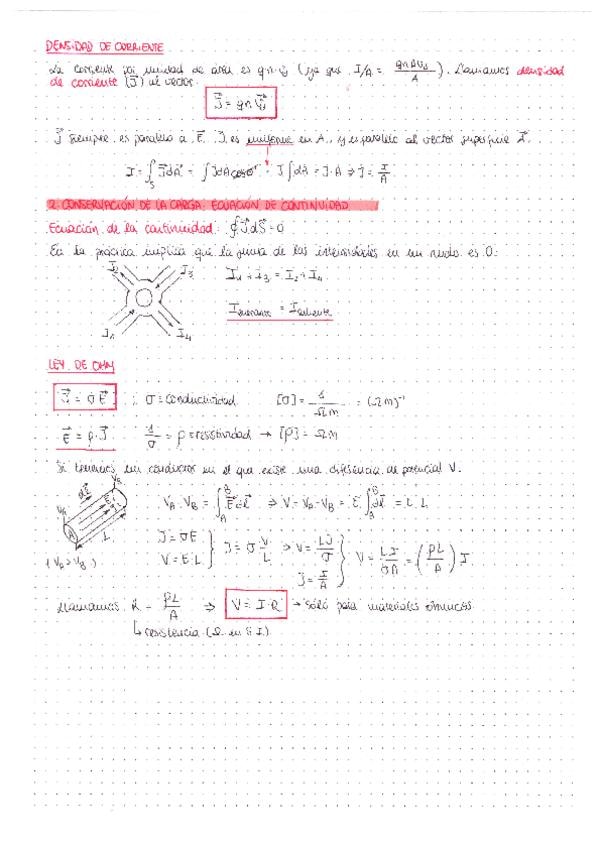 DENSIDAD DE CORRIENTE
La corriente por unidad de área es qn·v⃗d (ya que I/A = qnAvd / A). Llamamos densidad
de corriente (J⃗) al vector:
J⃗ = qn v⃗d
J⃗ siempre es paralelo a E⃗. J es uniforme en A, y paralelo al vector superficie A⃗.
I = ∫s J⃗dA⃗ = ∫JdAcos0° = J∫dA = J·A ⇒ J = I/A
2. CONSERVACIÓN DE LA CARGA. ECUACIÓN DE CONTINUIDAD
Ecuación de la continuidad: ∮J⃗dS⃗ = 0
En la práctica implica que la suma de las intensidades en un nudo es 0:
I2 I3 I1 + I3 = I2 + I4
I1 I4 Ientrante = Isaliente
LEY DE OHM
J⃗ = σE⃗ ; σ = conductividad [σ] = 1/Ωm = (Ωm)⁻¹
E⃗ = ρ·J⃗ 1/σ = ρ = resistividad → [ρ] = Ωm
Si tenemos un conductor en el que existe una diferencia de potencial V.
VA - VB = ∫A^B E⃗dl⃗ ⇒ V = VA - VB = E∫A^B dl⃗ = E·L
J = σE
V = E·L } J = σ V/L ⇒ V = LJ/σ
J = I/A } V = LI/σA = (ρL/A) I
Llamamos R = ρL/A ⇒ V = I·R → sólo para materiales óhmicos
↳ resistencia (Ω en S.I.)